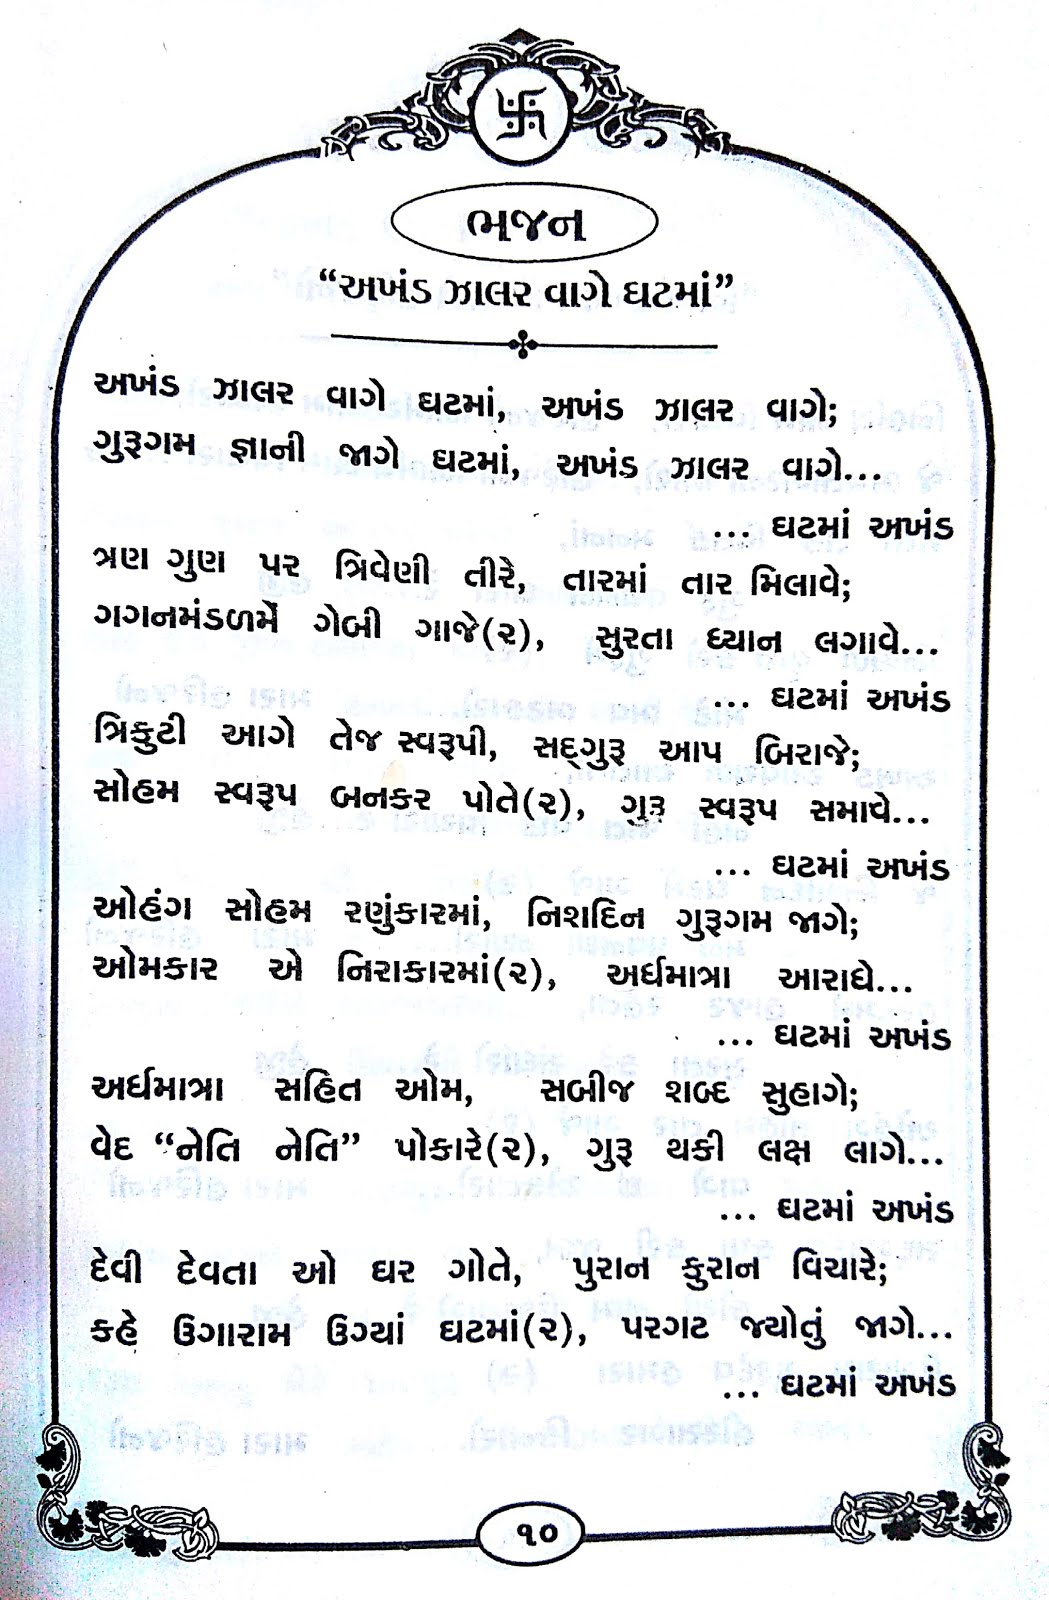 ભજન
“અખંડ ઝાલર વાગે ઘટમાં”
અખંડ ઝાલર વાગે ઘટમાં, અખંડ ઝાલર વાગે;
ગુરૂગમ જ્ઞાની જાગે ઘટમાં, અખંડ ઝાલર વાગે...
... ઘટમાં અખંડ
ત્રણ ગુણ પર ત્રિવેણી તીરે, તારમાં તાર મિલાવે;
ગગનમંડળમેં ગેબી ગાજે(૨), સુરતા ધ્યાન લગાવે...
... ઘટમાં અખંડ
ત્રિકુટી આગે તેજ સ્વરૂપી, સદ્ગુરૂ આપ બિરાજે;
સોહમ સ્વરૂપ બનકર પોતે(૨), ગુરૂ સ્વરૂપ સમાવે...
... ઘટમાં અખંડ
ઓહંગ સોહમ રણુંકારમાં, નિશદિન ગુરૂગમ જાગે;
ઓમકાર એ નિરાકારમાં(૨), અર્ધમાત્રા આરાધે...
... ઘટમાં અખંડ
અર્ધમાત્રા સહિત ઓમ, સબીજ શબ્દ સુહાગે;
વેદ “નેતિ નેતિ” પોકારે(૨), ગુરૂ થકી લક્ષ લાગે...
... ઘટમાં અખંડ
દેવી દેવતા ઓ ઘર ગોતે, પુરાન કુરાન વિચારે;
કહે ઉગારામ ઉગ્યાં ઘટમાં(૨), પરગટ જ્યોતું જાગે...
... ઘટમાં અખંડ
૧૦